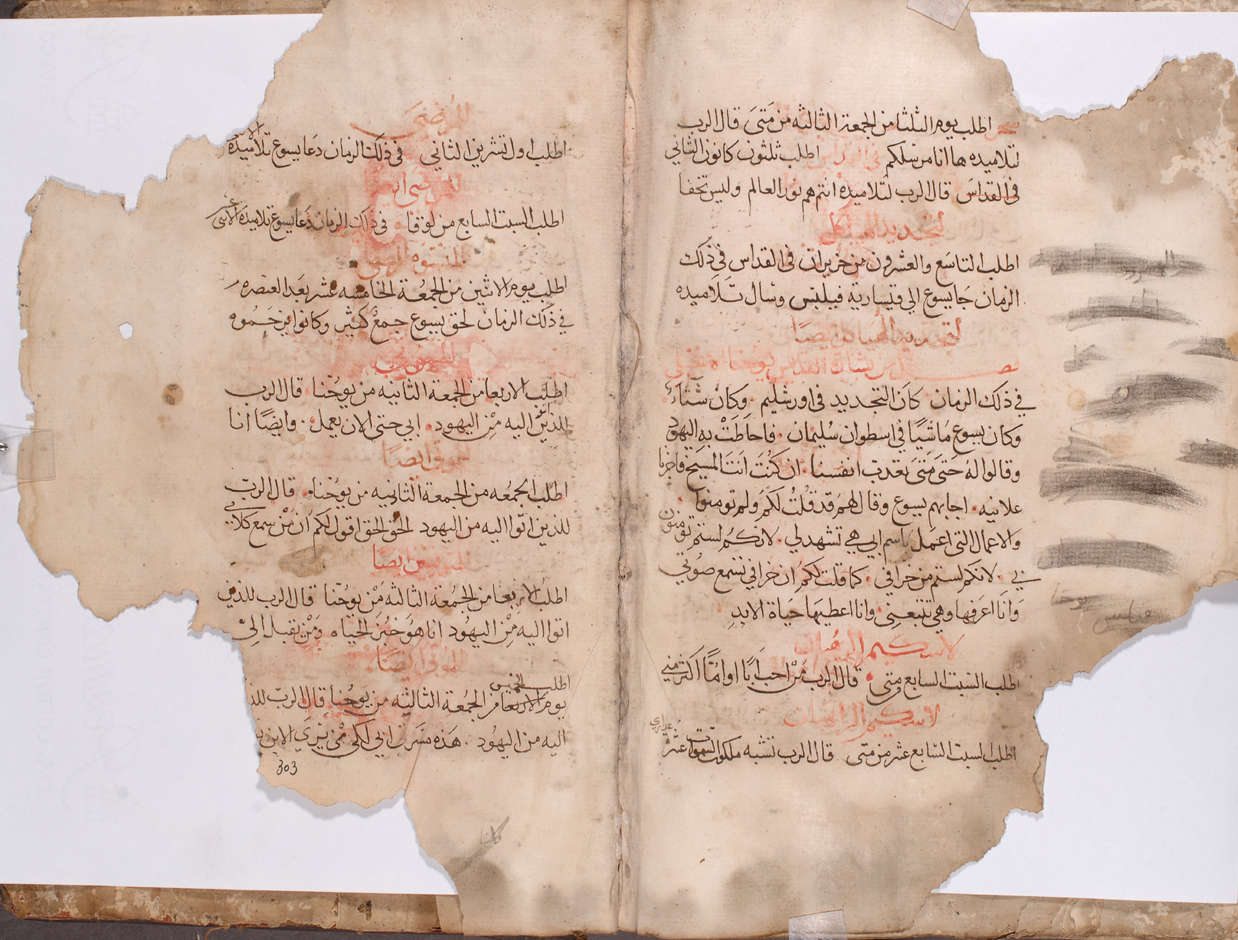 اطلب يوم الثلثا من الجمعة الثالثه من متى قال الرب
لتلاميذه ها انا مرسلكم اطلب ثلثون كانون الثاني
في القداس قال الرب لتلاميذه انتم هم نور العالم وليس تخفا
لتجديد الهيكل
اطلب التاسع والعشرون من حزيران في القداس في ذلك
الزمان جا يسوع الى قيسارية فيلبس وسال تلاميذه
لتجديد الهياكل ايضا
فصل من بشارة القديس يوحنا الانجيلي
في ذلك الزمان كان التجديد في اورشليم وكان شتاء
وكان يسوع ماشيا في اسطوان سليمان فاحاطت به اليهود
وقالوا له حتى متى تعذب انفسنا ان كنت انت المسيح فاخبرنا
علانيه اجابهم يسوع وقال لهم قد قلت لكم ولم تومنوا
والاعمال التي اعمل باسم ابي هي تشهد لي لانكم لستم تومنون
بي لانكم لستم من خرافي كما قلت لكم ان خرافي تستمع صوتي
وانا اعرفها وهي تتبعني وانا اعطيها حياة الابد
لاسكيم الرهبان
اطلب السبت السابع من متى قال الرب من احب ابا او اما اكثر مني
لاسكيم الراهبات
اطلب السبت السابع عشر من متى قال الرب تشبه ملكوت السموات عشر
عذاري
للمرضى
اطلب اول تشرين الثاني في ذلك الزمان دعا يسوع تلاميذه الاثني
عشر
اطلب السبت السابع من لوقا في ذلك الزمان دعا يسوع تلاميذه الاثني
عشر
للنسوه المرضى
اطلب يوم الاثنين من الجمعة الخامسه عشر بعد العنصره
في ذلك الزمان لحق يسوع جمع كثير وكانوا يزحموه
اطلب الاربعا من الجمعة الثانيه من يوحنا قال الرب
للذين اتوا اليه من اليهود ابي حتى الان يعمل وايضا انا
للموتى ايضا
اطلب الجمعه من الجمعة الثانيه من يوحنا قال الرب
للذين اتوا اليه من اليهود الحق الحق اقول لكم ان من سمع كلامي
ايضا
اطلب الاربعا من الجمعة الثالثه من يوحنا قال الرب للذين
اتوا اليه من اليهود انا هو خبز الحياه ومن يقبل الي
للموتى ايضا
اطلب الخميس
يوم الاربعا من الجمعة الثالثه من يوحنا قال الرب
اليه من اليهود هذه مسرت ابي لكي من يرى الابن
303